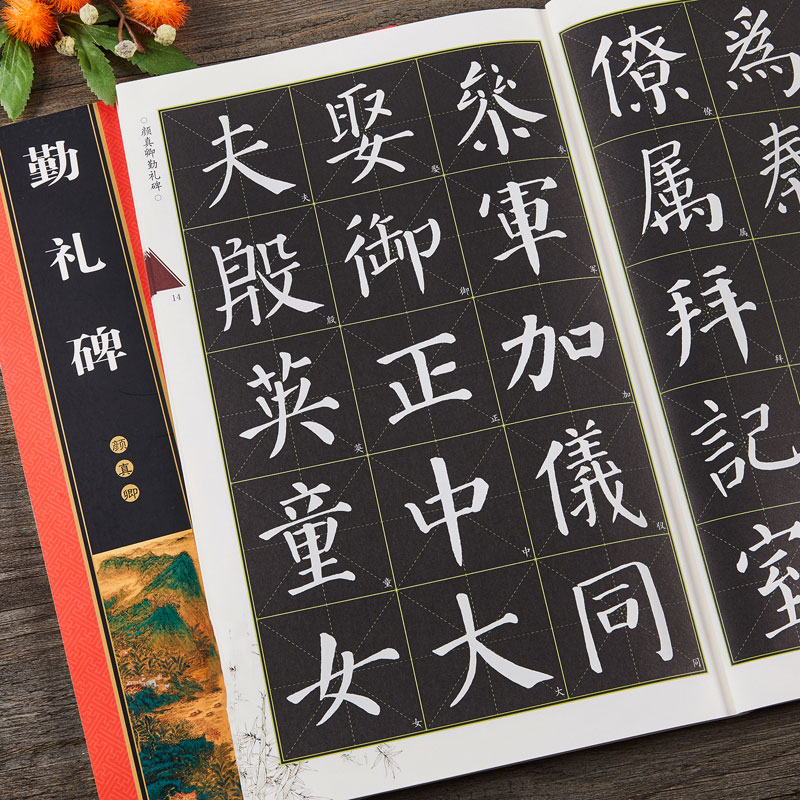 勤礼碑
颜真卿
為秦
僚属拜記室
僚属拜
叅軍加儀同
参军加仪同
娶御正中大
娶御正中大
夫殷英童女
夫殷英童女
○颜真卿勤礼碑○
14